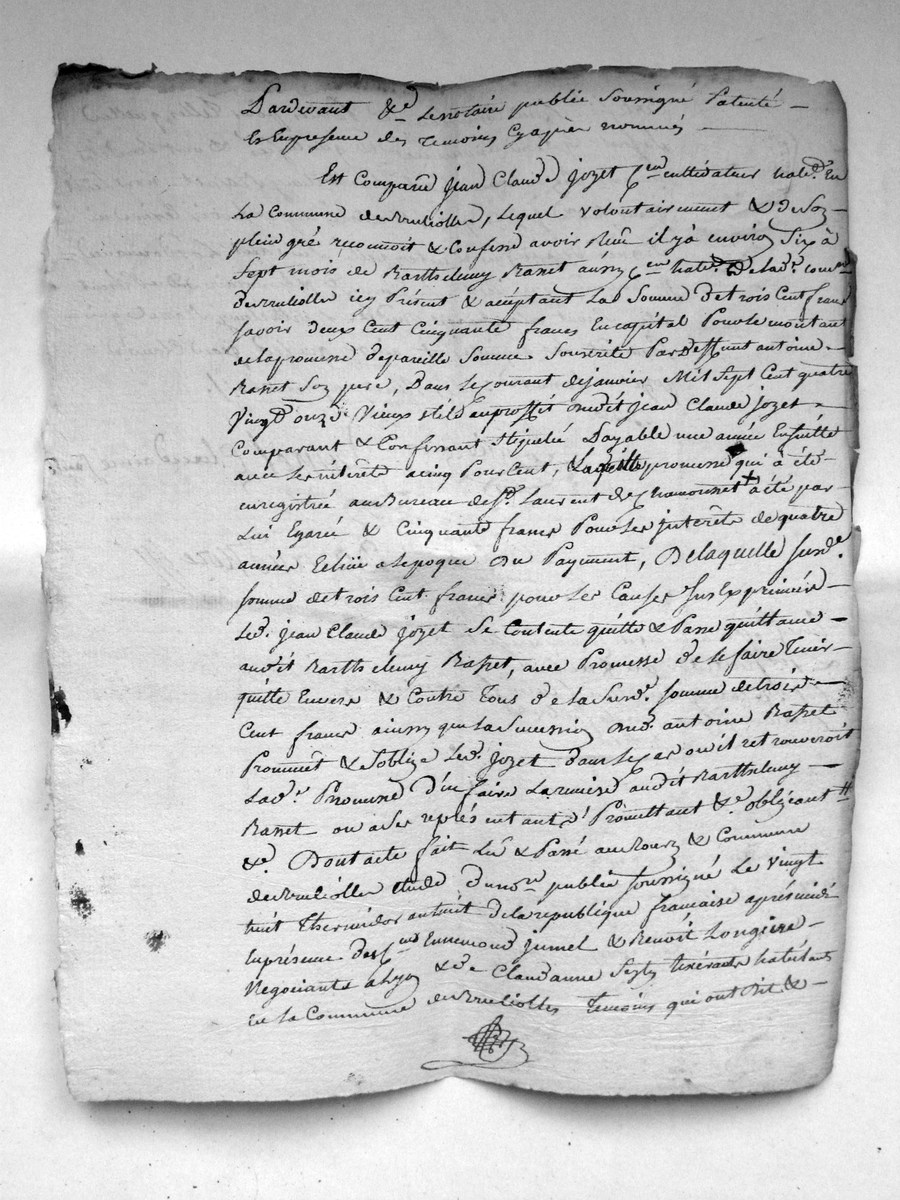 Pardevant &e. Le Notaire public Soussigné Patenté –
Et En presence des Temoins Cy après nommés —
Est Comparu jean Claude jozet Cen cultivateur habt. En
La Commune de Brulliolles, Lequel Volontairement & de Son
plein gré, reconnoit & Confesse avoir Reçu il y à environ Six à
Sept mois de Barthelemy Rasset aussy Cen habt. de Lade. comne
de Brulliolles icy Présent & acceptant Lad. Somme de trois Cent francs
savoir deux Cent Cinquante francs En capital Pour le montant
de la promesse de pareille Somme Souscrite Par Deffunt antoine
Rasset Son pere, Dans Le Courant de janvier Mil Sept Cent quatre
Vingt onze Vieux Stile au proffit dudit jean Claude jozet –
Comparant & Confessant Stipulé Payable une année Ensuitte
avec Ses interêts a cinq Pour Cent, Laquelle promesse qui à été
enregistrée au Bureau de St. Laurent de Chamousset + à été par
Lui Egarée & Cinquante francs Pour Les jnterêts de quatre
années Echüe a Lepoque du Payement, De Laquelle Susde.
Somme de trois Cent francs pour les Causes Sus Exprimées –
Led. jean Claude jozet Se Contente quitte & Passe quittance –
audit Barthelemy Rasset, avec Promesse de le faire Tenir
quitte Envers & Contre Tous de la Susde. Somme de trois –
Cent francs ainsy que La Sucession dud. antoine Rasset
Prommet & S'oblige Led. jozet dans Le Cas ou il retrouveroit
Lade. Promesse D'en faire La remise audit Barthelemy –
Rasset ou a Ses representants, Promettant &e. obligeant
&e. Dont acte fait Lû & Passé au Bourg & Commune
de Brulliolles etude du nore. public Soussigné Le Vingt
huit Thermidor an huit de la republique francaise après midi
En présence des Cens Ennemond jumel & Benoit Longere –
Negociants a Lyon & de Claudanne habitants
En La Commune de Brulliolles Temoins qui ont Dit & –